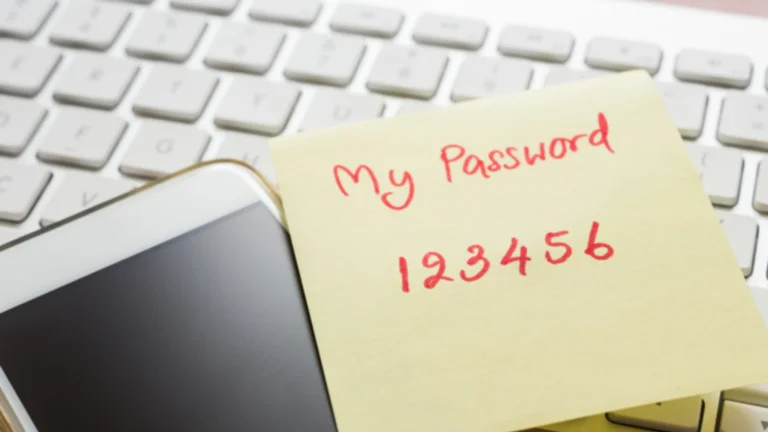 My Password
123456
E R T Y U
D F G
C V